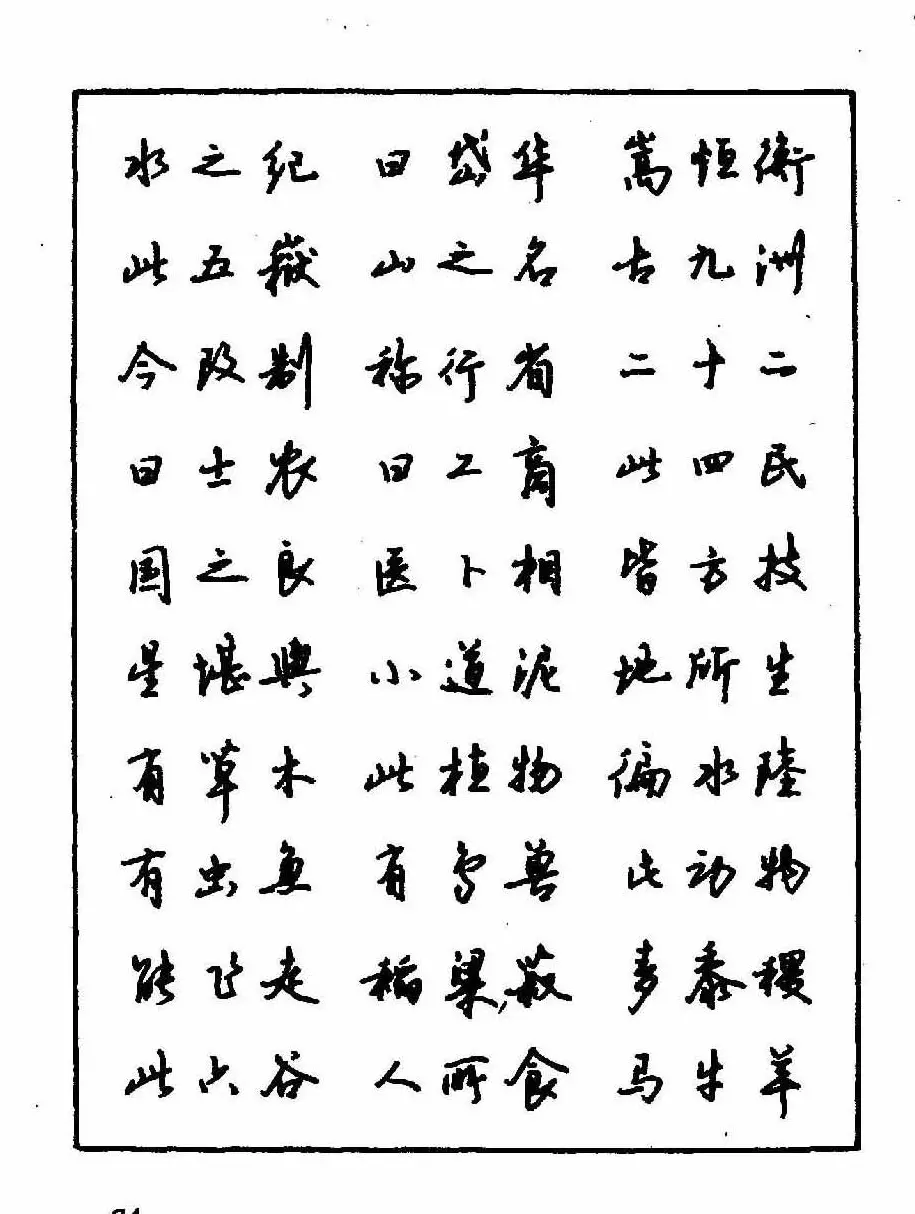 水之纪 曰岱华 嵩恒衡
此五嶽 山之名 古九洲
今改制 称行省 二十二
曰士农 曰工商 此四民
国之良 医卜相 皆方技
星堪舆 小道泥 地所生
有草木 此植物 徧水陸
有虫鱼 有鸟兽 此动物
能飞走 稻粱菽 麦黍稷
此六谷 人所食 马牛羊